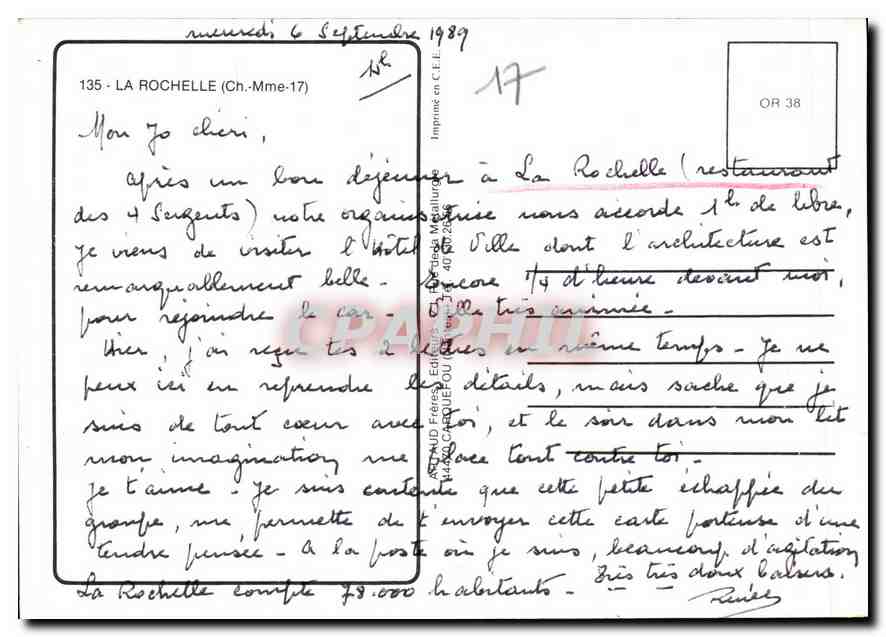 mercredi 6 Septembre 1989
15h
135 - LA ROCHELLE (Ch.-Mme-17)
17
OR 38
Imprimé en C.E.E.
ARTAUD Frères, Editeurs - Rue de la Métallurgie
44470 CARQUEFOU
CPAPHIL
Mon Jo chéri,
après un bon déjeuner à La Rochelle (restaurant
des 4 Sergents) notre organisatrice nous accorde 1h de libre,
je viens de visiter l'Hôtel de Ville dont l'architecture est
remarquablement belle - Encore 1/4 d'heure devant moi,
pour rejoindre le car - Ville très animée -
Hier, j'ai reçu tes 2 lettres en même temps - Je ne
peux ici en reprendre les détails, mais sache que je
suis de tout cœur avec toi, et le soir dans mon lit
mon imagination me place tout contre toi -
Je t'aime - Je suis contente que cette petite échappée du
groupe, me permette de t'envoyer cette carte porteuse d'une
tendre pensée - A la poste où je suis, beaucoup d'agitation
La Rochelle compte 78.000 habitants - Très très doux baisers.
Renée